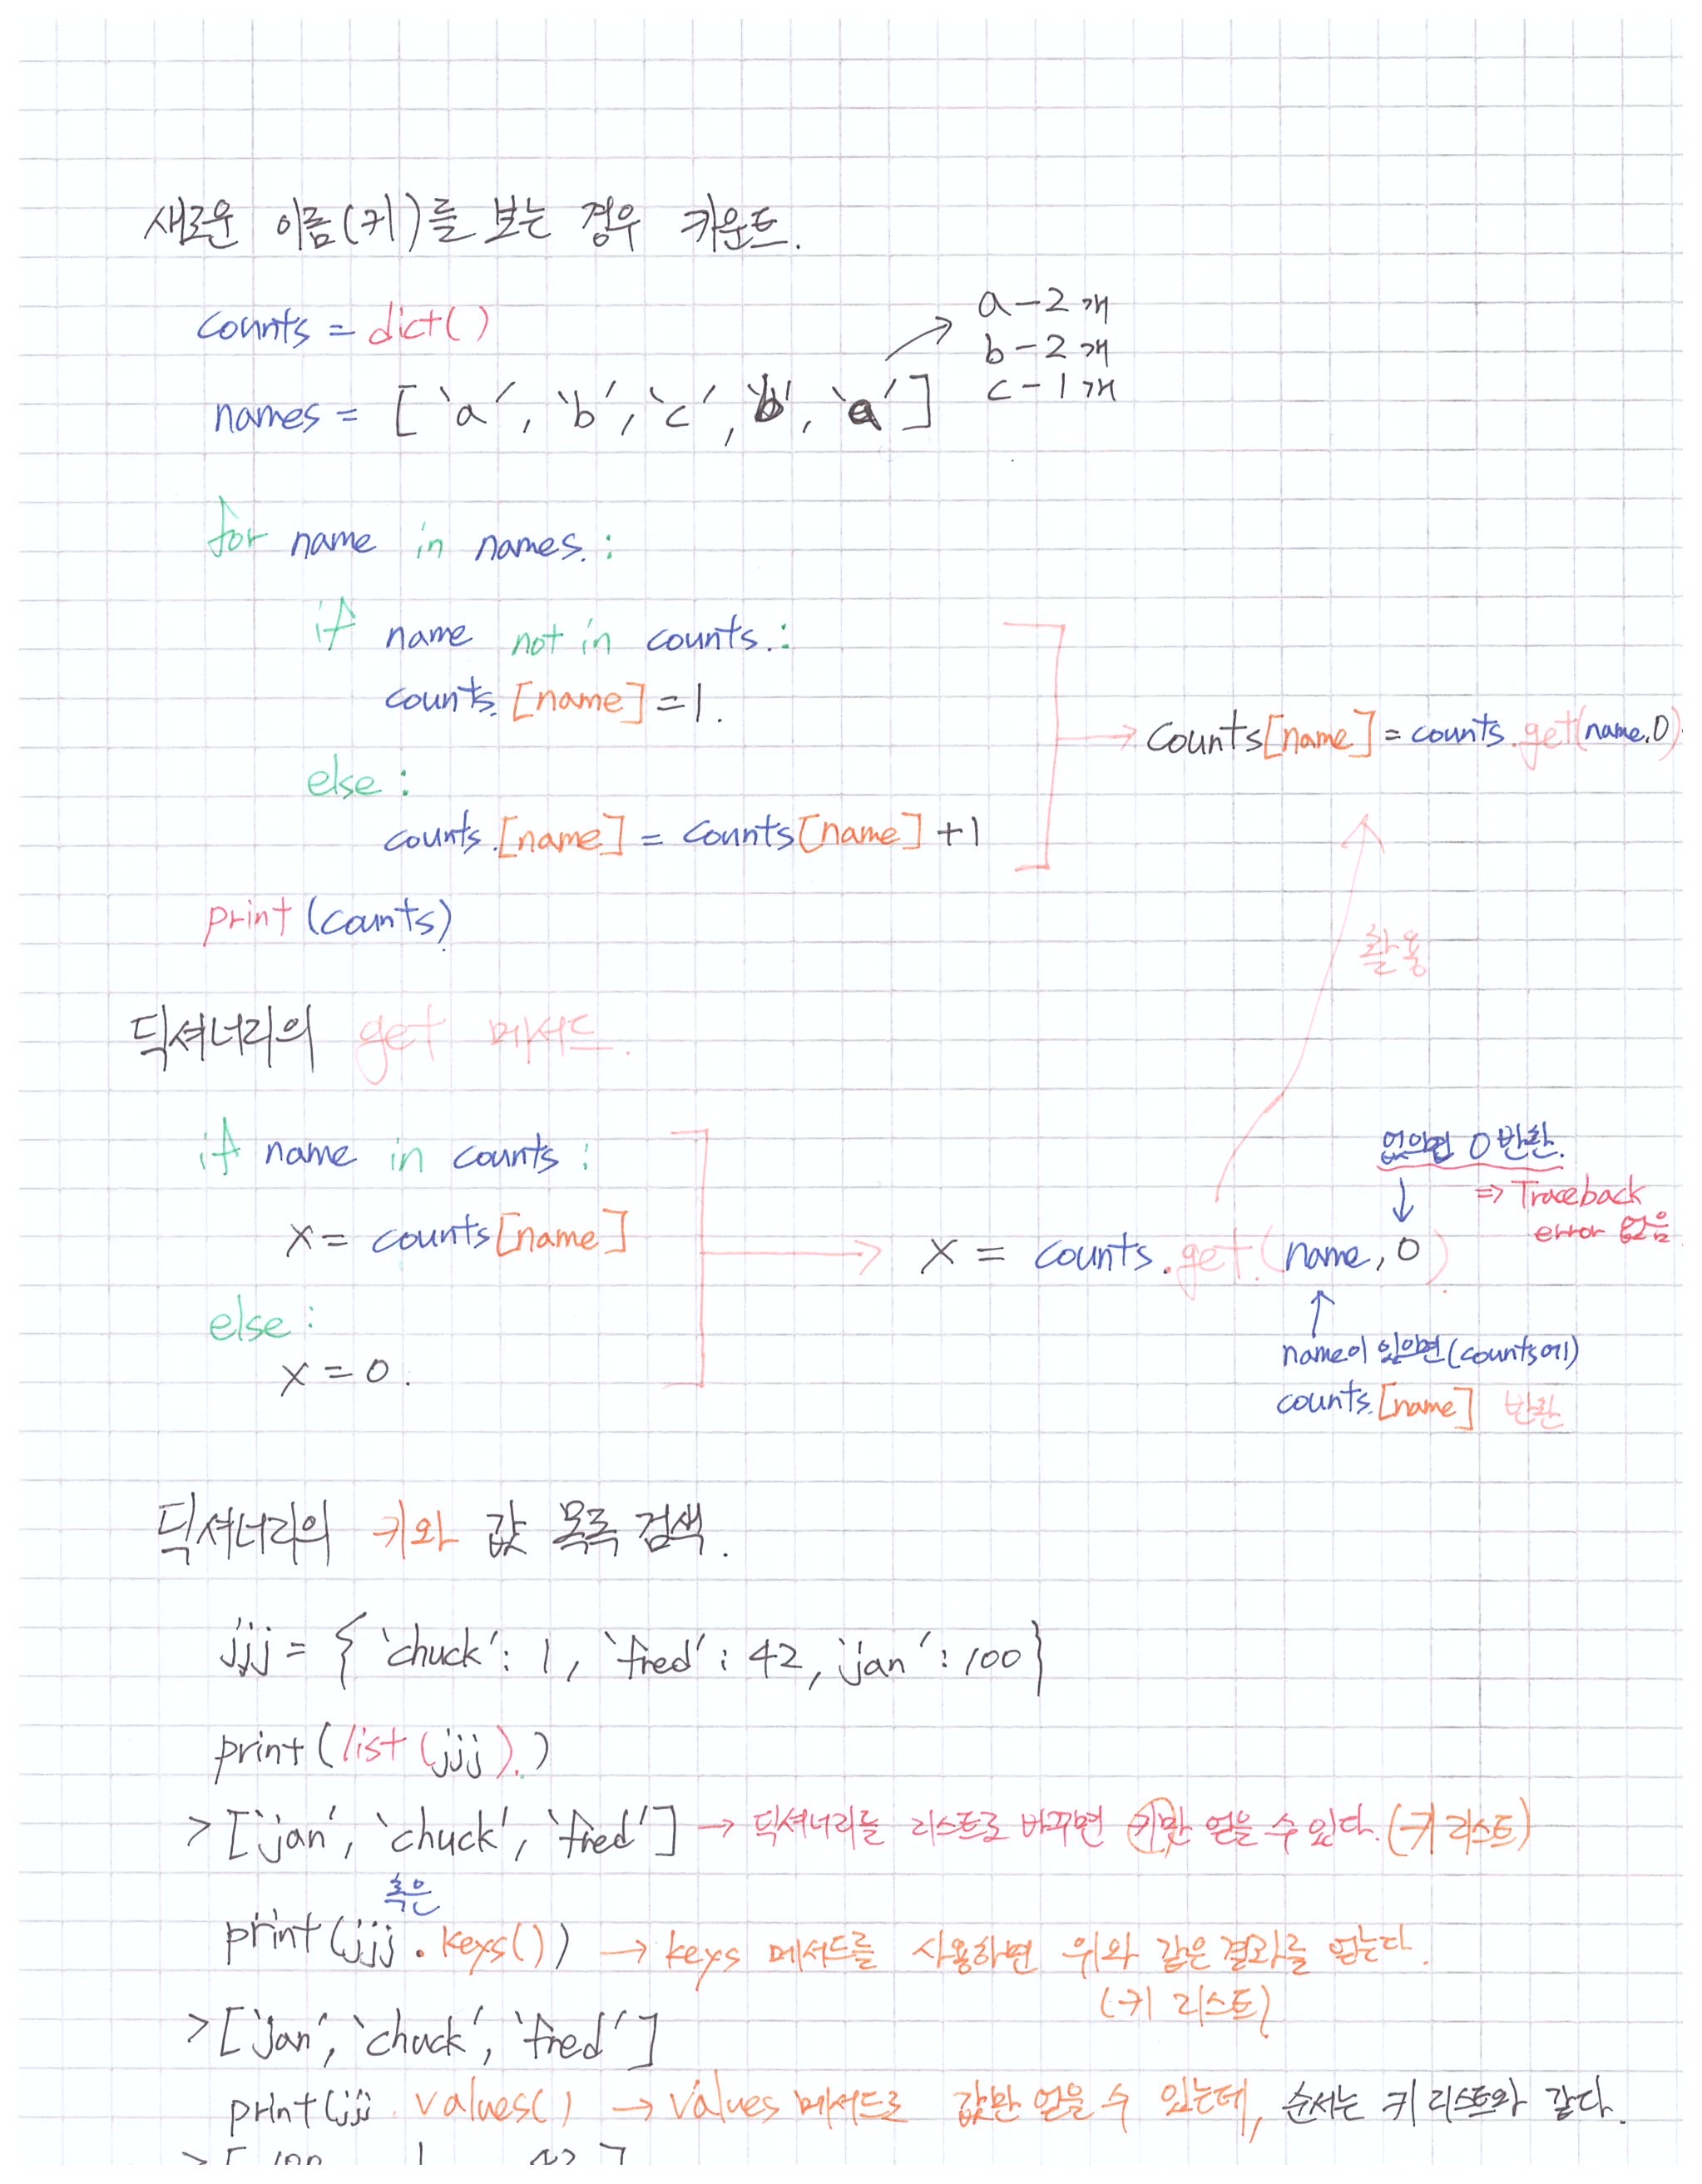 새로운 이름(키)를 보는 경우 카운트.
counts = dict()
names = ['a', 'b', 'c', 'b', 'a']
a - 2개
b - 2개
c - 1개
for name in names :
if name not in counts :
counts[name] = 1.
else :
counts[name] = counts[name] + 1
Counts[name] = counts.get(name,0)
print(counts)
활용
딕셔너리의 get 메서드.
if name in counts :
x = counts[name]
else :
x = 0.
없으면 0 반환.
⇒ Traceback
error 없음
x = counts.get(name, 0)
name이 있으면(counts에)
counts[name] 반환
딕셔너리의 키와 값 목록 검색.
jjj = { 'chuck' : 1, 'fred' : 42, 'jan' : 100}
print(list(jjj))
> ['jan', 'chuck', 'fred'] → 딕셔너리를 리스트로 바꾸면 키만 얻을 수 있다. (키 리스트)
혹은
print(jjj.keys()) → keys 메서드를 사용하면 위와 같은 결과를 얻는다.
(키 리스트)
> ['jan', 'chuck', 'fred']
print(jjj.values() → values 메서드로 값만 얻을 수 있는데, 순서는 키 리스트와 같다.